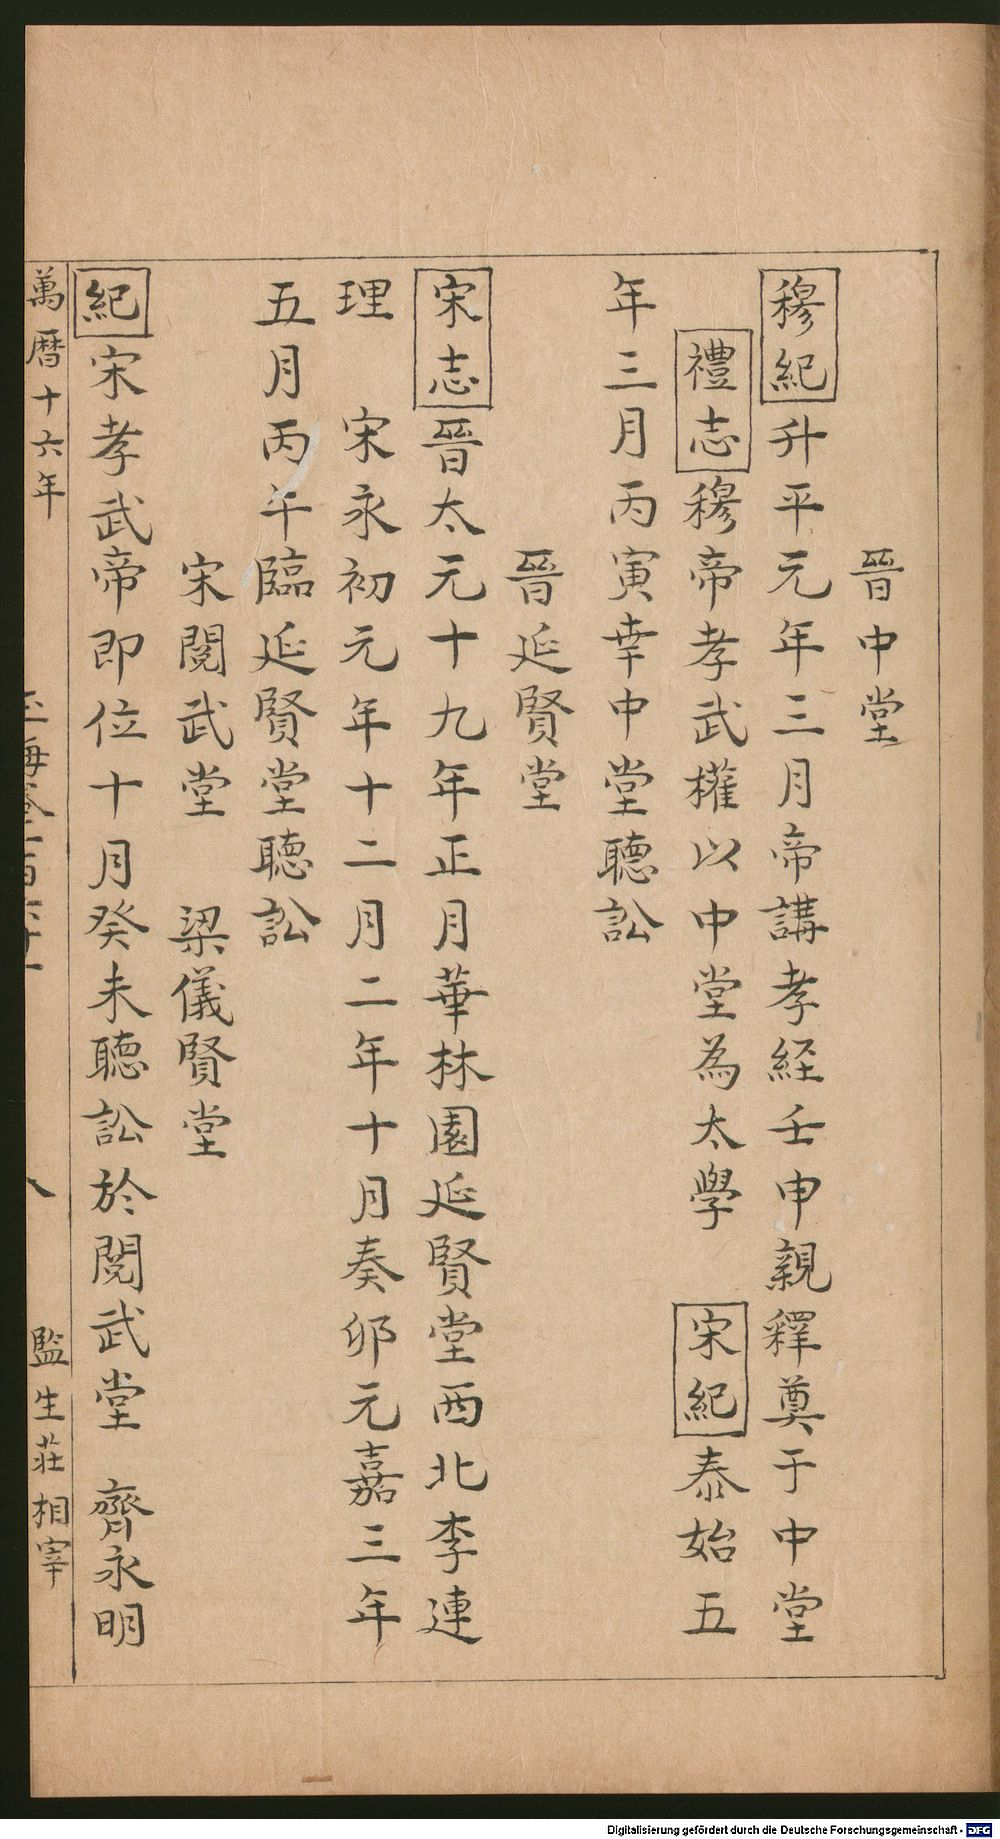 晉中堂
穆紀升平元年三月帝講孝経壬申親釋奠于中堂
禮志穆帝孝武權以中堂為太學 宋紀泰始五
年三月丙寅幸中堂聽訟
晉延賢堂
宋志晉太元十九年正月華林園延賢堂西北李連
理 宋永初元年十二月二年十月奏卯元嘉三年
五月丙午臨延賢堂聽訟
宋閱武堂 梁儀賢堂
紀宋孝武帝即位十月癸未聽訟於閱武堂 齊永明
萬曆十六年 玉海卷一百六十一 八 監生莊相宰
Digitalisierung gefördert durch die Deutsche Forschungsgemeinschaft - DFG